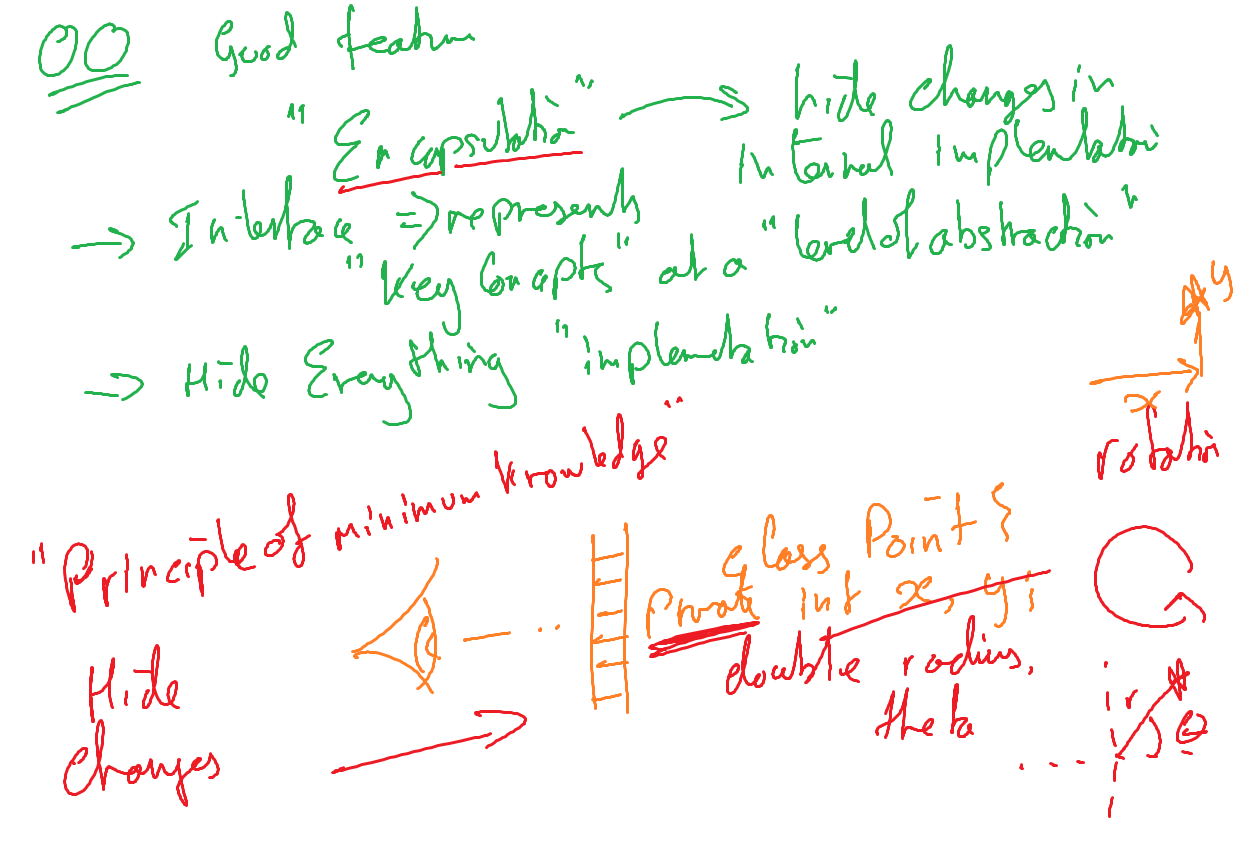 OO Good feature
"Encapsulation" → hide changes in
internal implementation
→ Interface ⇒ represents
"Key Concepts" at a "level of abstraction"
→ Hide Everything "implementation"
y
x
rotation
"Principle of minimum knowledge"
class Point {
private int x, y;
double radius,
theta
Hide
changes
r
θ